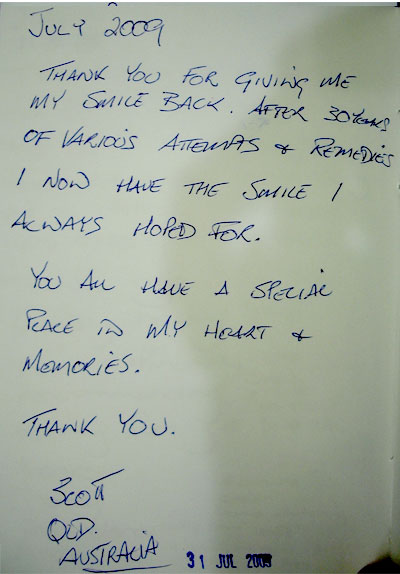 JULY 2009
THANK YOU FOR GIVING ME
MY SMILE BACK. AFTER 30 YEARS
OF VARIOUS ATTEMPTS & REMEDIES
I NOW HAVE THE SMILE I
ALWAYS HOPED FOR.
YOU ALL HAVE A SPECIAL
PLACE IN MY HEART &
MEMORIES.
THANK YOU.
SCOTT
QLD.
AUSTRALIA
31 JUL 2009